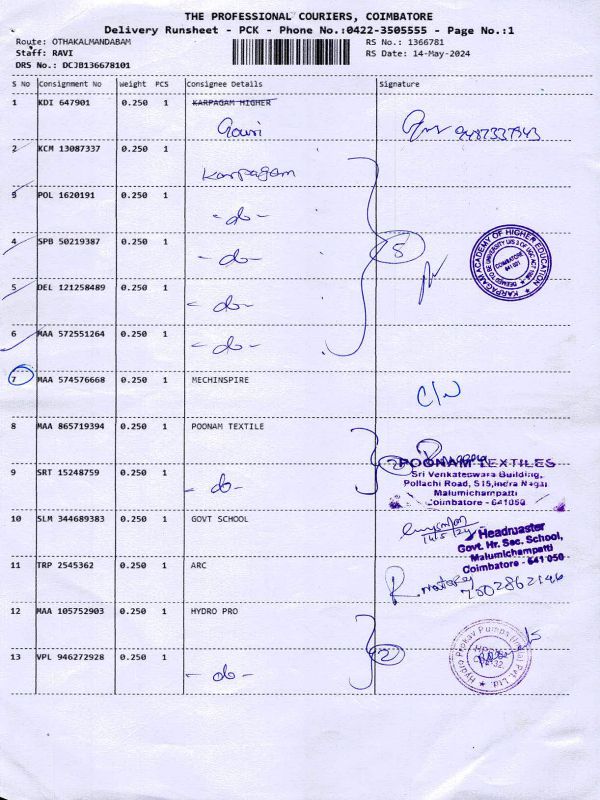 THE PROFESSIONAL COURIERS, COIMBATORE
Delivery Runsheet - PCK - Phone No.:0422-3505555 - Page No.:1
Route: OTHAKALMANDABAM RS No.: 1366781
Staff: RAVI RS Date: 14-May-2024
DRS No.: DCJB136678101
S No Consignment No Weight PCS Consignee Details Signature
1 KDI 647901 0.250 1 KARPAGAM HIGHER
Gowri 9487337943
2 KCM 13087337 0.250 1
Karpagam
3 POL 1620191 0.250 1
-do-
4 SPB 50219387 0.250 1 5
-do-
KARPAGAM ACADEMY OF HIGHER EDUCATION
COIMBATORE
641 021
5 DEL 121258489 0.250 1
-do-
6 MAA 572551264 0.250 1
-do-
7 MAA 574576668 0.250 1 MECHINSPIRE
C/N
8 MAA 865719394 0.250 1 POONAM TEXTILE
2
POONAM TEXTILES
Sri Venkateswara Building,
9 SRT 15248759 0.250 1
-do-
Pollachi Road, S15,Indra Nagar
Malumichampatti
Coimbatore - 641050
10 SLM 344689383 0.250 1 GOVT SCHOOL
14/5/24
Headmaster
Govt. Hr. Sec. School,
Malumichampatti
Coimbatore - 641 050
11 TRP 2545362 0.250 1 ARC
7502862146
12 MAA 105752903 0.250 1 HYDRO PRO
13 VPL 946272928 0.250 1 2
-do-
Hydro Prokav Pumps (India) Pvt. Ltd.